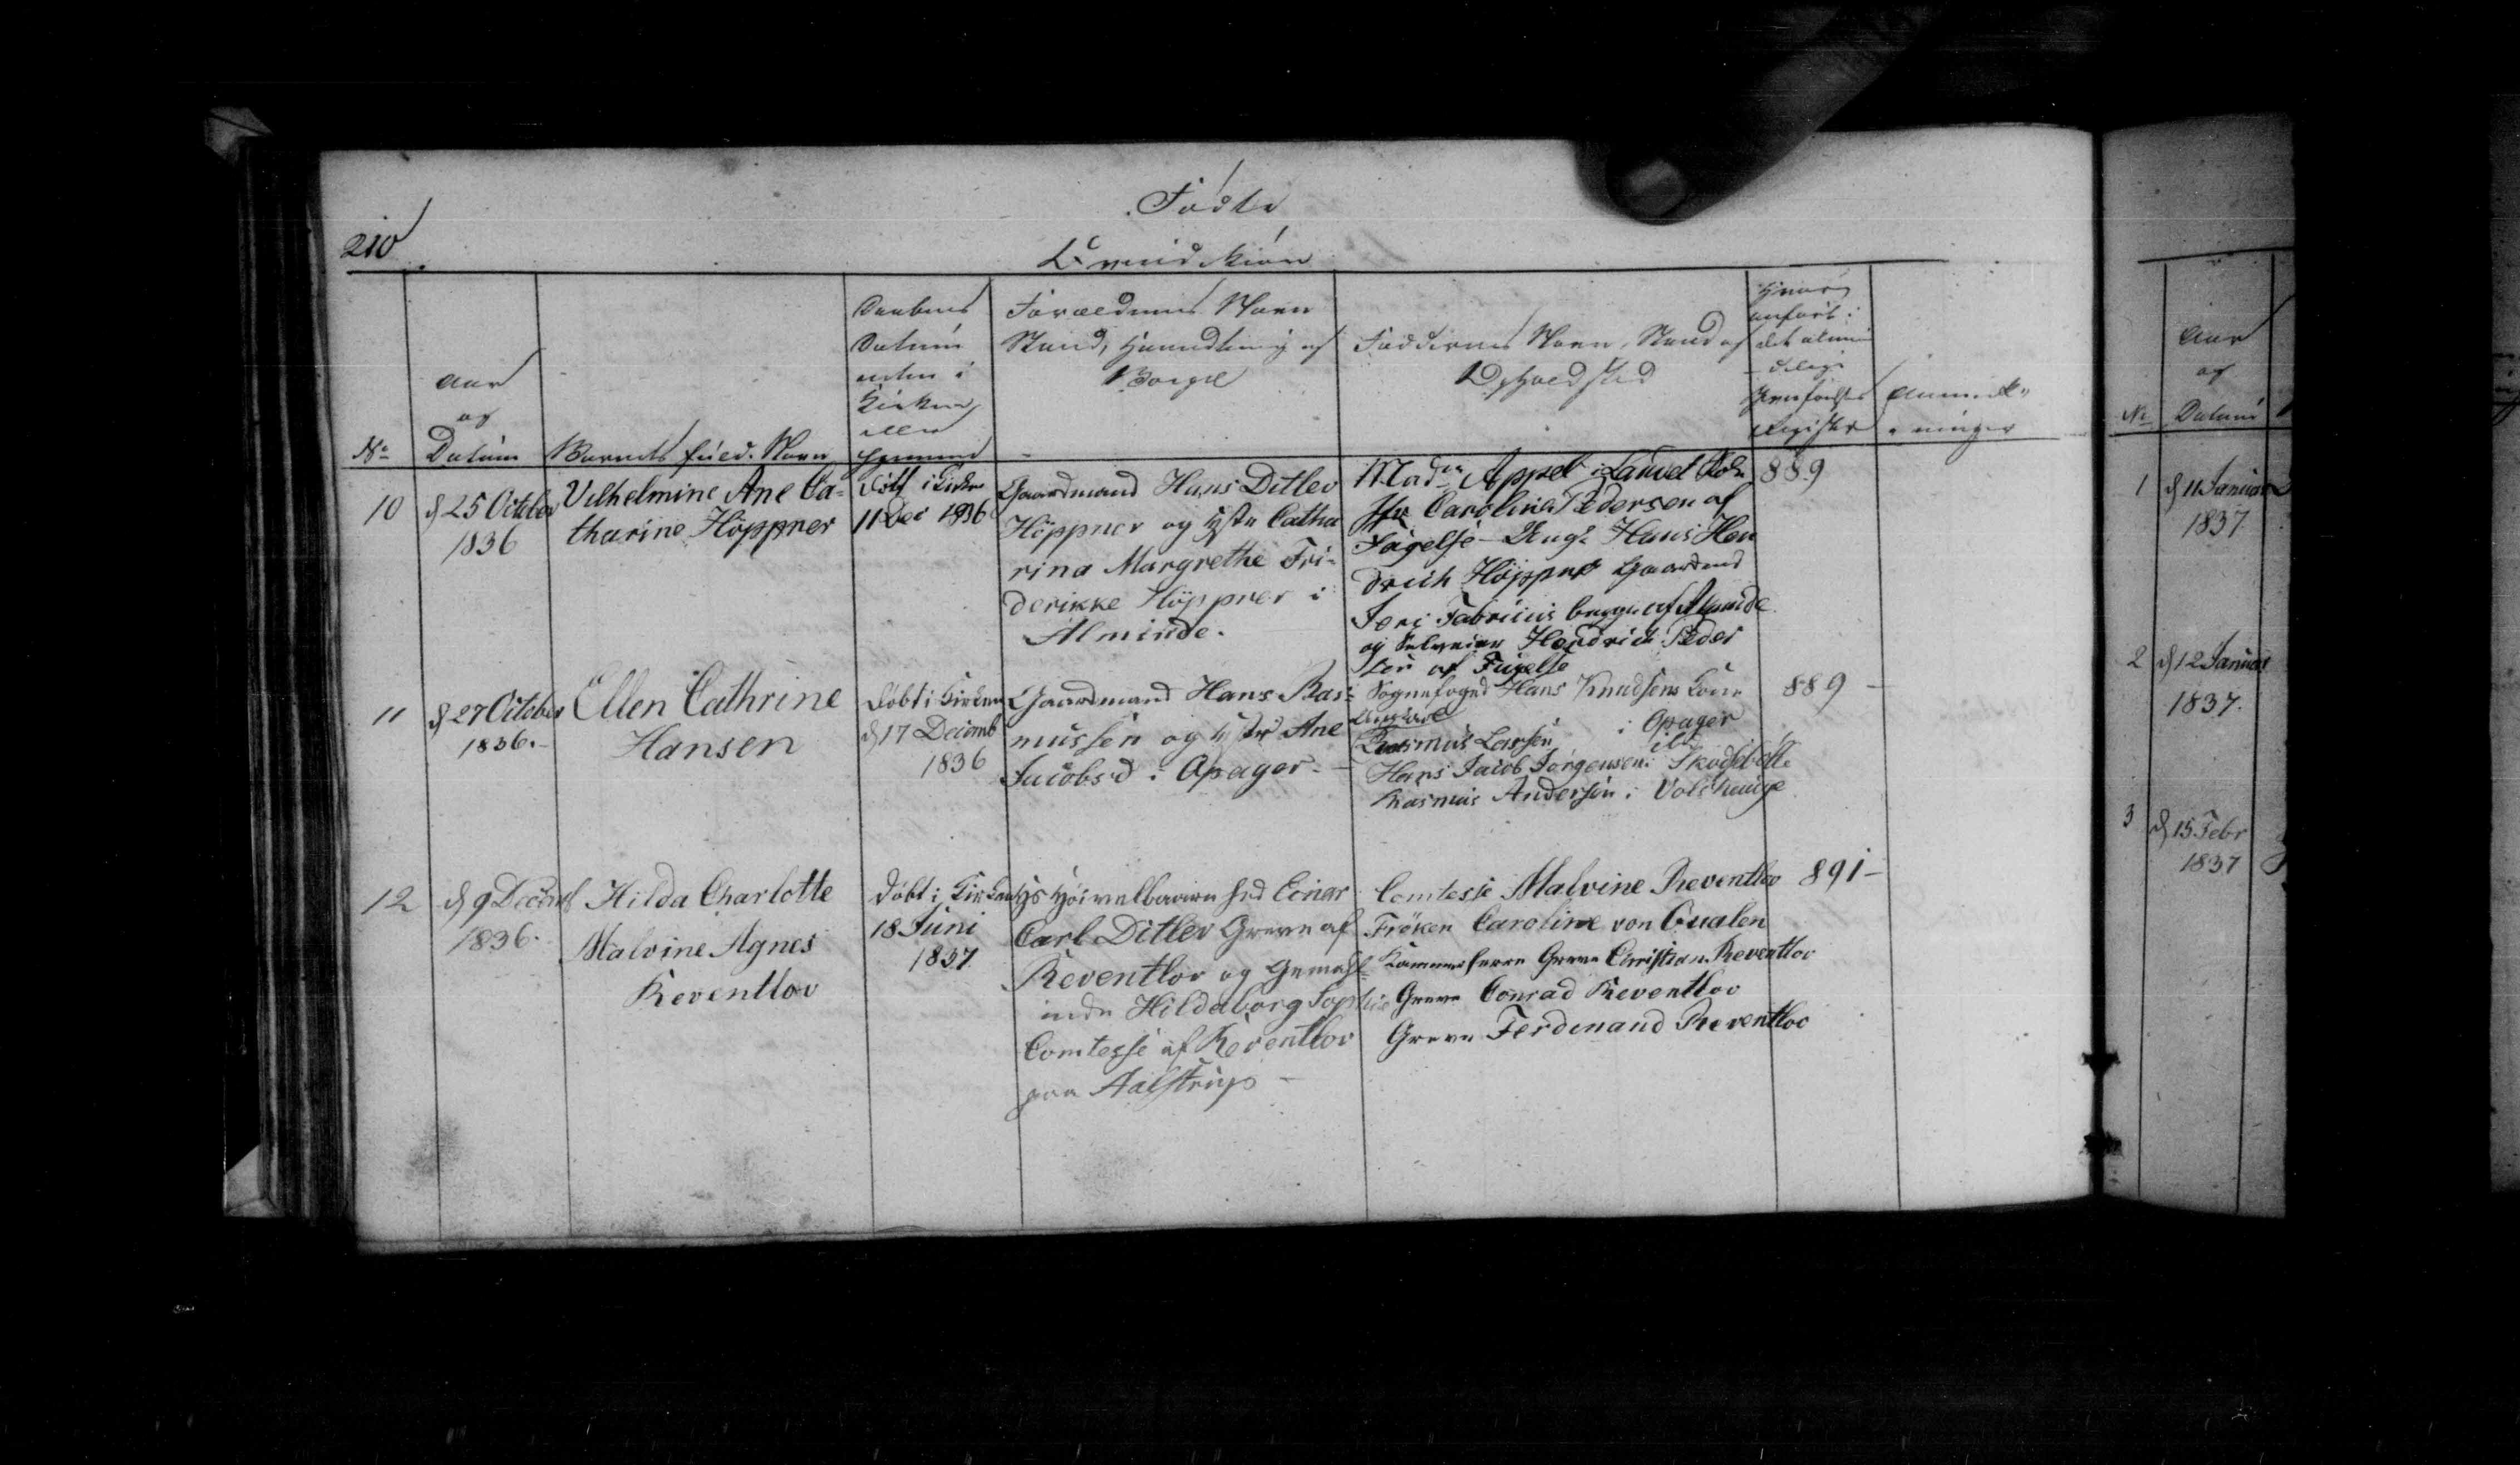 Fødte
210
Qvindekiøn
No
Aar
og
Datum
Barnets fulde Navn
Daabens
Datum
enten i
Kirken
eller
hjemme
Forældrenes Navn
Stand, Haandtering og
Boepæl
Faddernes Navn, Stand og
Opholdsted
Hvor
anført i
det almin
delige
Jevnførelses
Register
Anmærk-
ninger
10
d 25 October
1836
Vilhelmine Ane Ca-
tharine Höppner
Døbt i Kirken
11 Dec 1836
Gaardmand Hans Ditlev
Höppner og Hustr Catha
rina Margrethe Fri-
derikke Höppner i
Alminde.
Madm Appel
Jfr Caroline Pedersen af
Fugelse - Ungk Hans Hen
drich Höppner Gaardmd
Fabricius begge af Alminde
og Hendrich Peder
sen af Fugelse
889
11
d 27 October
1836.
Ellen Cathrine
Hansen
Døbt i Kirken
d 17 Decemb
1836
Gaardmand Hans Ras-
mussen og Hustr Ane
Jacobsd i Opager. -
Sognefoged Hans Knudsens Kone
Ungkarl
Rasmus Larsen i Opager
Hans Jacob Jørgensen i Skodsebølle
Rasmus Andersen i Volshauge
889 -
12
d 9 Decemb
1836.
Hilda Charlotte
Malvine Agnes
Reventlov
Døbt i Kirken
18 Juni
1837
Hs Høivelbaarenhed Einar
Carl Ditlev Greve af
Reventlov og Gemahl-
inde Hildaborg Sophie
Comtesse af Reventlov
paa Aalstrup -
Comtesse Malvine Reventlov
Frøken Caroline von Qualen
Kammerherre Greve Christian Reventlov
Greve Conrad Reventlov
Greve Ferdinand Reventlov
891 -
No
Aar
og
Datum
1
d 11 Januar
1837
2
d 12 Januar
1837.
3
d 15 Febr
1837